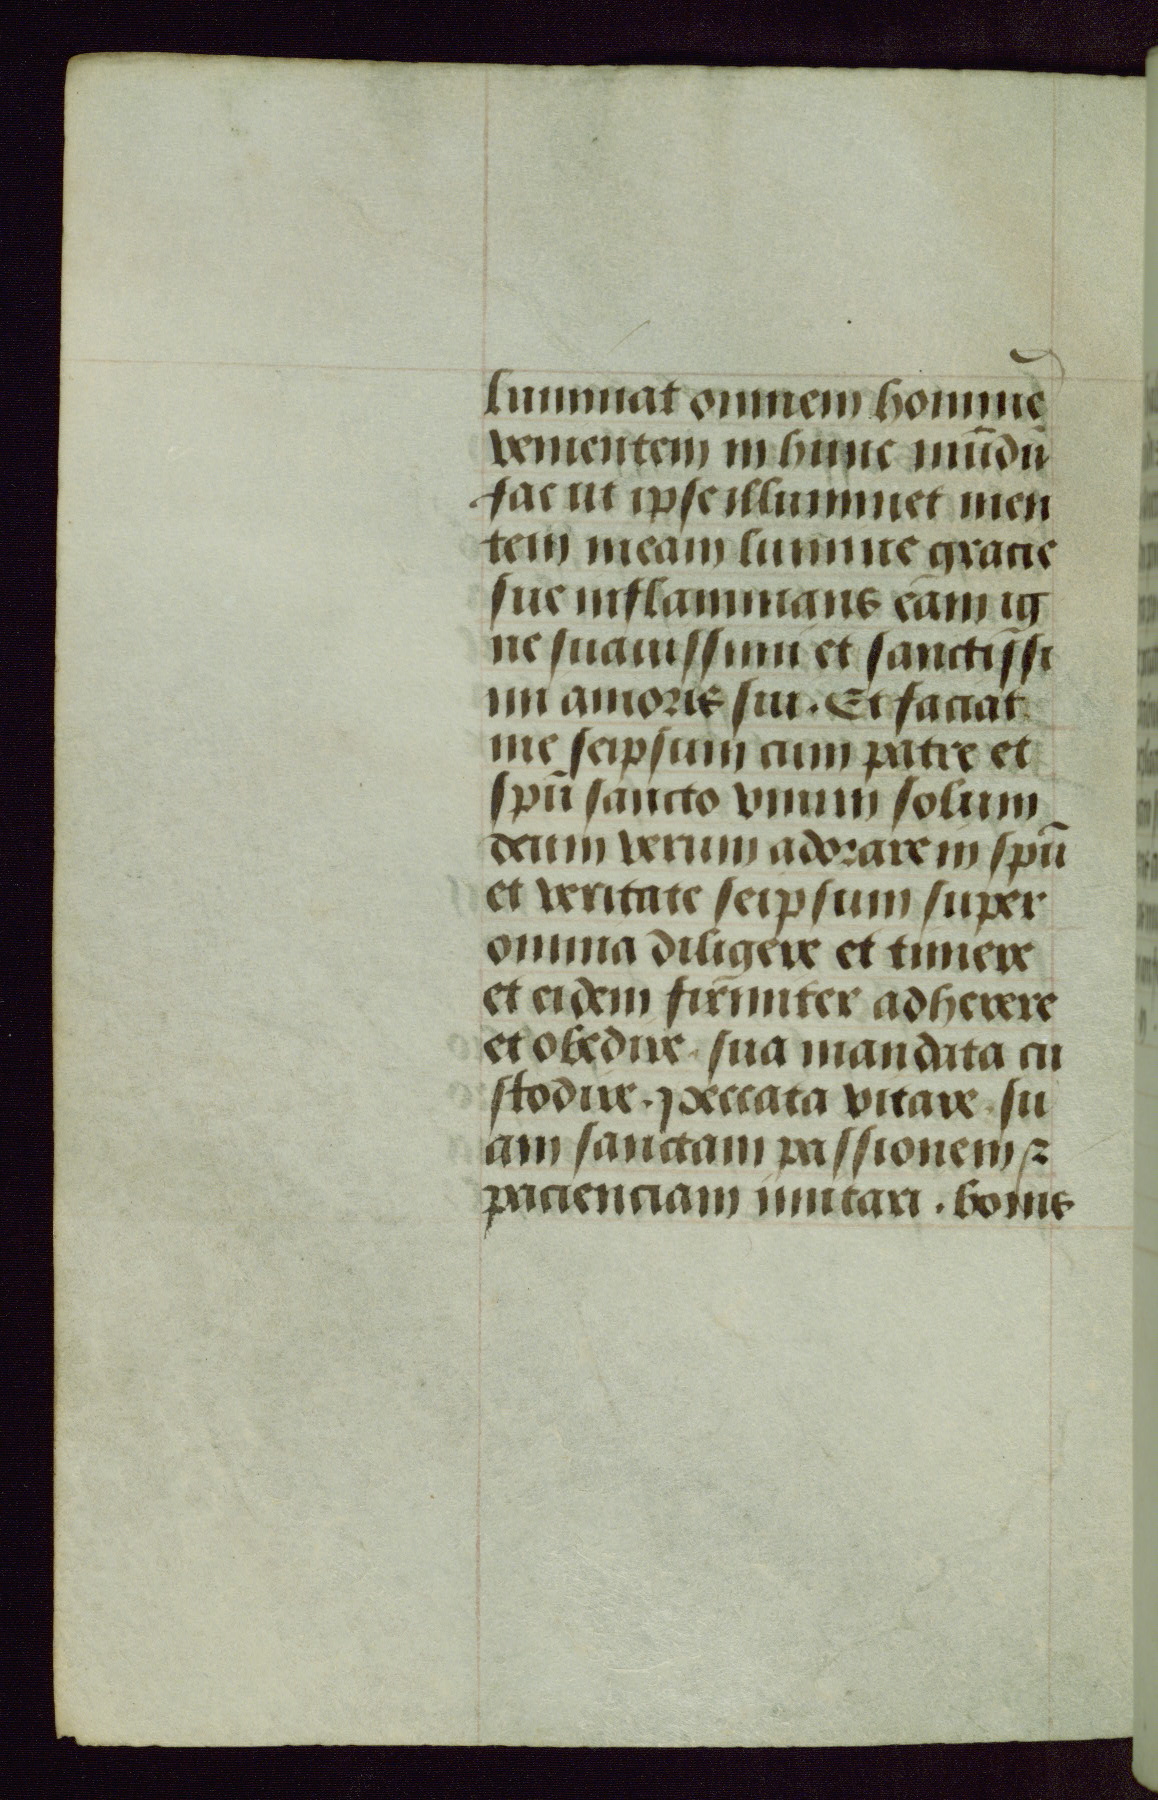 luminat omnem hominē
venientem in hunc mūdū
fac ut ipse illuminet men
tem meam lumine gracie
sue inflammans eam ig
ne suauissimi et sanctissi
mi amoris sui. Et faciat
me seipsum cum patre et
spū sancto vnum solum
deum verum adorare in spū
et veritate seipsum super
omnia diligere et timere
et eidem firmiter adherere
et obedire. sua mandata cu
stodire. peccata vitare. su
am sanctam passionem ⁊
pacienciam imitari. bonis